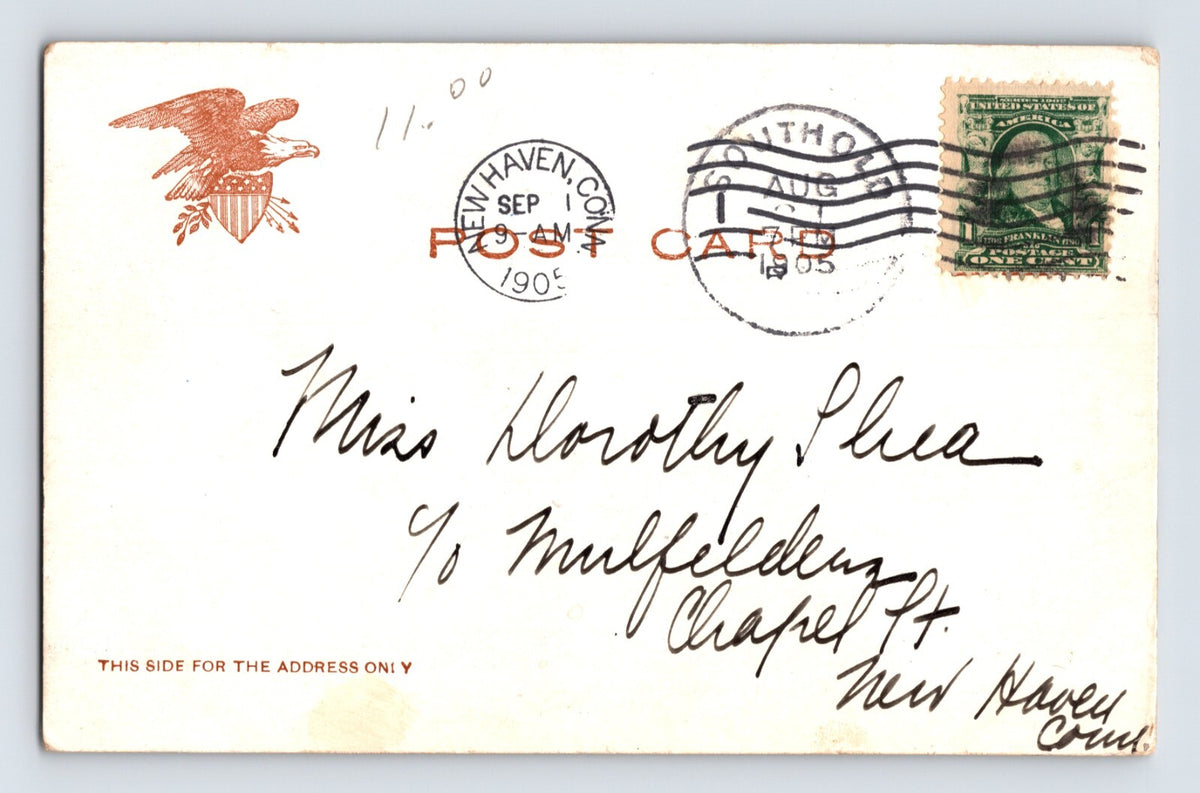 11.00
NEW HAVEN, CONN.
SEP 1
9-AM
1905
SOUTHOLD
AUG
31
1905
SERIES 1902
UNITED STATES OF
AMERICA
1 FRANKLIN 1
POSTAGE
ONE CENT
POST CARD
Miss Dorothy Shea
c/o Mulfeldenz
Chapel St.
New Haven
Conn.
THIS SIDE FOR THE ADDRESS ONLY